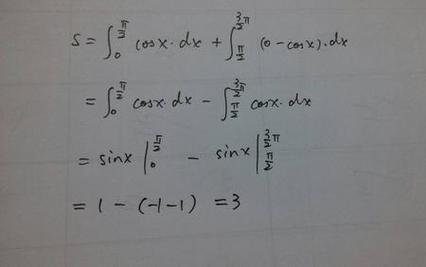 S = ∫₀^{π/2} cosx·dx + ∫_{π/2}^{3/2 π} (0-cosx)·dx
= ∫₀^{π/2} cosx·dx - ∫_{π/2}^{3/2 π} cosx·dx
= sinx |₀^{π/2} - sinx |_{π/2}^{3/2 π}
= 1 - (-1-1) = 3